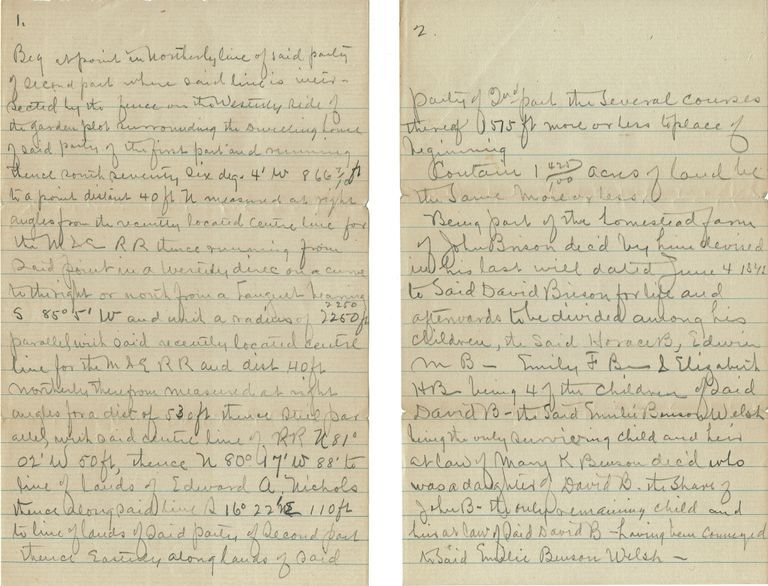 1.
Beg at point in Northerly line of said party
of second part where said line is inter-
sected by the fence on the Westerly side of
the garden plot surrounding the dwelling house
of said party of the first part and running
thence south seventy six deg. 4' W 866 ft
to a point distant 40 ft N measured at right
angles from the recently located centre line for
the M & E RR thence running from
said point in a Westerly direc on a curve
to the right or north from a tangent bearing
S 85° 5' W and with a radius of 2250 ft
2250
parallel with said recently located centre
line for the M & E RR and dist 40 ft
northerly therefrom measured at right
angles for a dist of 530 ft thence still par
allel with said centre line of RR N 81°
02' W 50 ft, thence N 80° 17' W 88' to
line of lands of Edward A. Nichols
thence along said line S 16° 22½ E 110 ft
to line of lands of said party of second part
thence Easterly along lands of said
2.
party of 2nd part the several courses
thereof 1575 ft more or less to place of
beginning
Contain 1 425/100 acres of land be
the same more or less.
Being part of the homestead farm
of John Benson dec'd by him devised
in his last will dated June 4
to said David Benson for life and
afterwards to be divided among his
children, the said Horace B, Edwin
M B - Emily F B - & Elizabeth
H B - being 4 of the children of said
David B - the said Emilie Benson Welsh
being the only surviving child and heir
at law of Mary K Benson dec'd who
was a daughter of David B. the share of
John B - the only remaining child and
heir at law of said David B - having been conveyed
to said Emilie Benson Welsh -